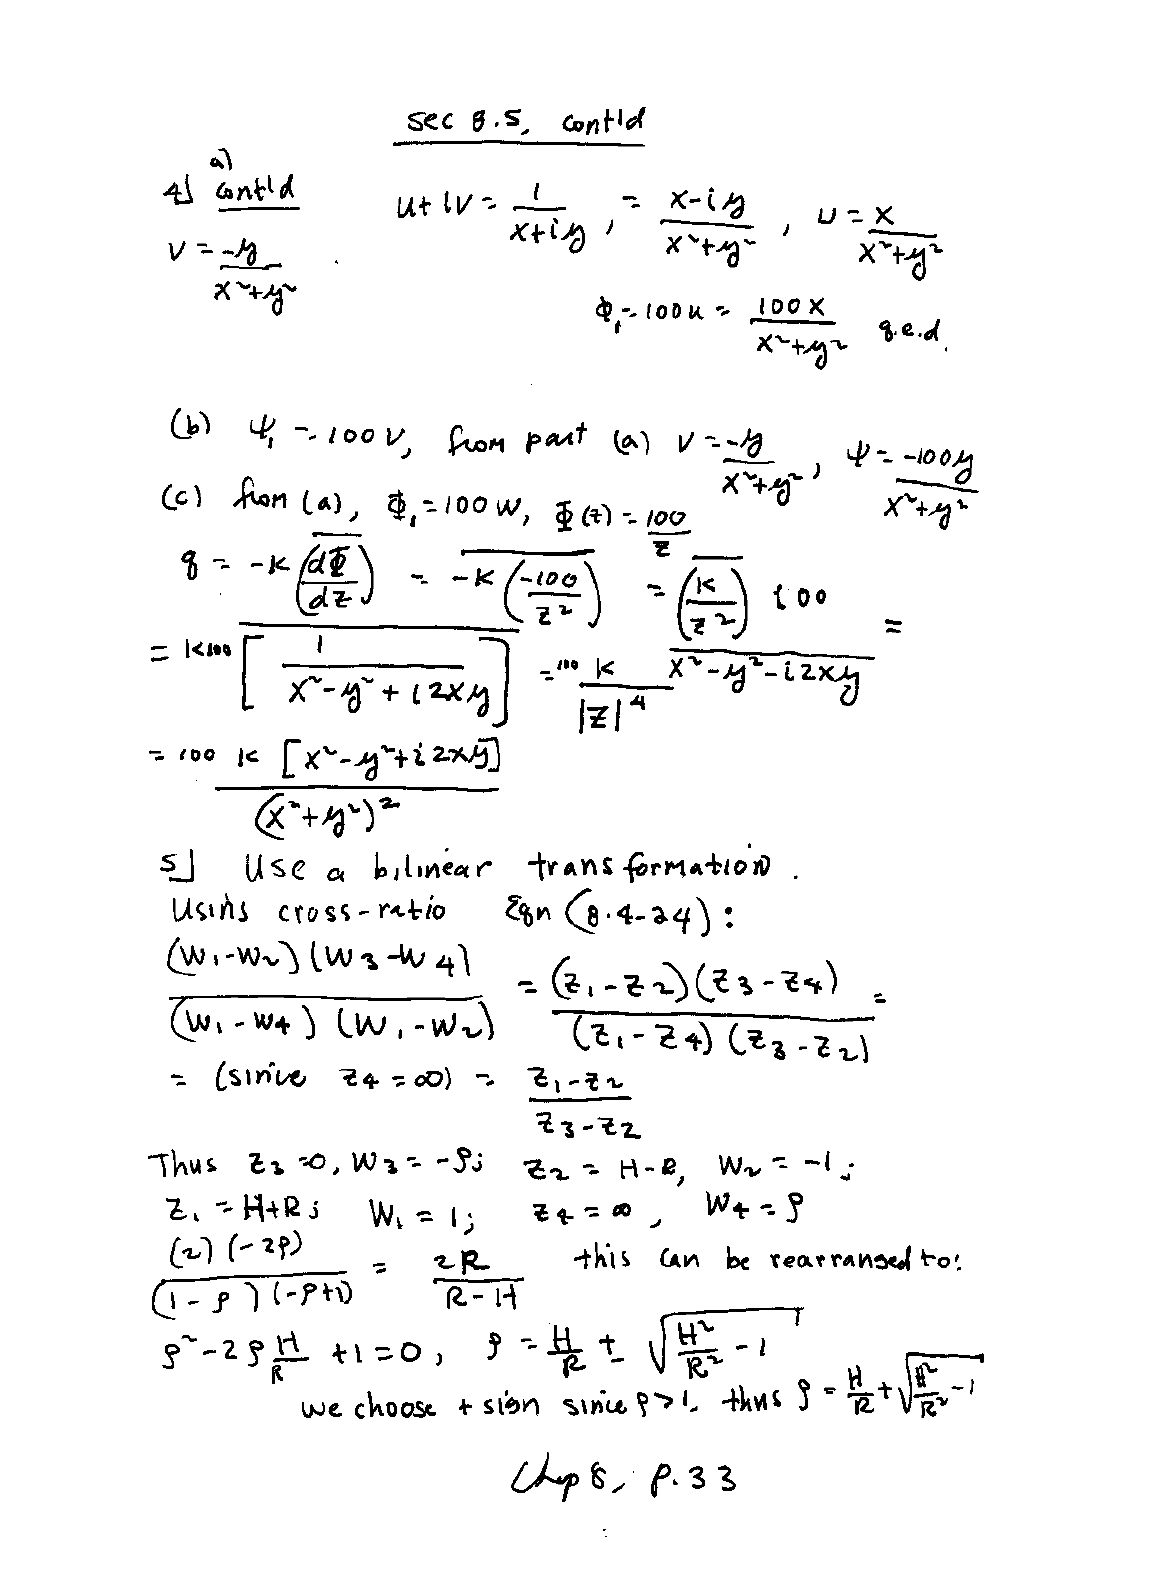 sec 8.5, cont'd
4] a) cont'd u+iv = 1/(x+iy), = (x-iy)/(x²+y²), u = x/(x²+y²)
v = -y/(x²+y²)
φ₁ = 100u = 100x/(x²+y²) q.e.d.
(b) ψ₁ = 100v, from part (a) v = -y/(x²+y²), ψ = -100y/(x²+y²)
(c) from (a), Φ₁ = 100w, Φ(z) = 100/z
q = -k \overline{(dΦ/dz)} = \overline{-k(-100/z²)} = \overline{(k/z²)} 100 =
= k100 \overline{[1/(x²-y²+i2xy)]} = 100 k/|z|⁴ \overline{x²-y²-i2xy}
= 100 k [x²-y²+i2xy]/(x²+y²)²
5] Use a bilinear transformation.
Using cross-ratio Eqn (8.4-24):
(w₁-w₂)(w₃-w₄)/(w₁-w₄)(w₁-w₂) = (z₁-z₂)(z₃-z₄)/(z₁-z₄)(z₃-z₂) =
= (since z₄ = ∞) = (z₁-z₂)/(z₃-z₂)
Thus z₃=0, w₃ = -ρ; z₂ = H-R, w₂ = -1;
z₁ = H+R; w₁ = 1; z₄ = ∞, w₄ = ρ
(2)(-2ρ)/(1-ρ)(-ρ+1) = 2R/(R-H) this can be rearranged to:
ρ²-2ρ H/R +1=0, ρ = H/R ± √(H²/R² - 1)
we choose + sign since ρ>1. thus ρ = H/R + √(H²/R² - 1)
Chap 8, p.33